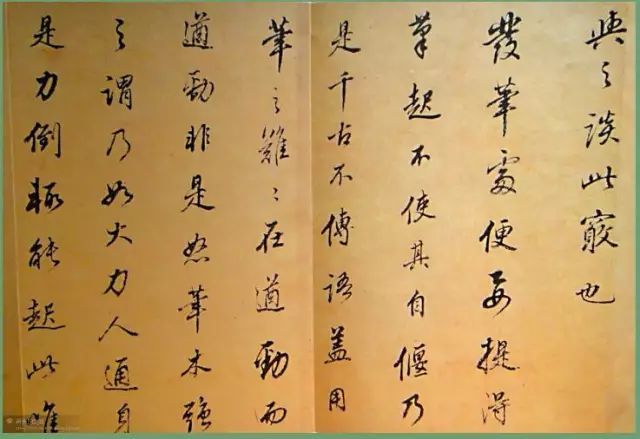 與之談此竅也
發筆處便要提得
筆起不使其自偃乃
是千古不傳語蓋用
筆之難〻在遒勁而
遒勁非是怒筆木強
之謂乃如大力人通身
是力倒輒能起此惟